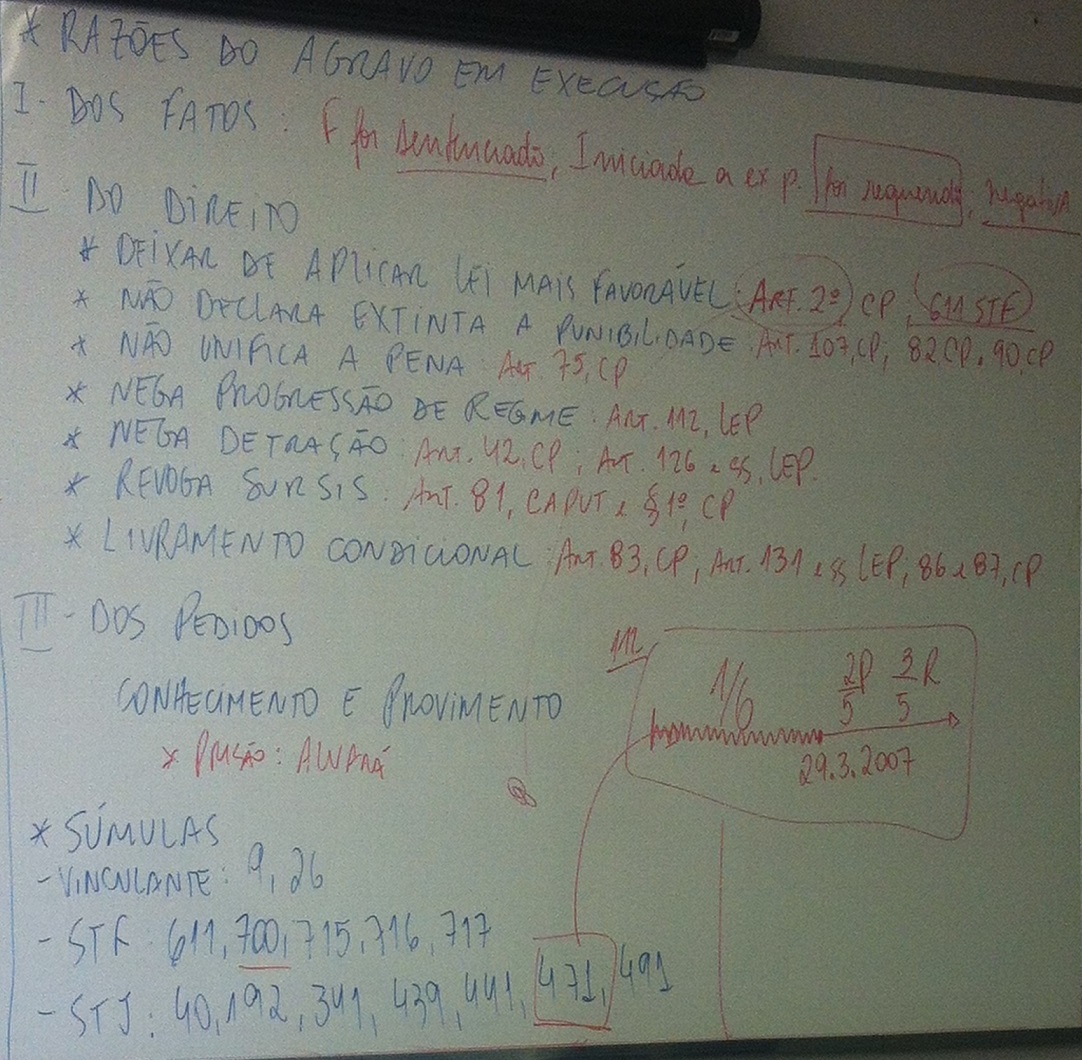 * RAZÕES DO AGRAVO EM EXECUSÃO
I - DOS FATOS: F foi sentenciado, Iniciada a ex p. foi requerido, negativa
II - DO DIREITO
* DEIXAR DE APLICAR LEI MAIS FAVORÁVEL: ART. 2º CP, 611 STF
* NÃO DECLARA EXTINTA A PUNIBILIDADE: ART. 107, CP, 82 CP. 90, CP
* NÃO UNIFICA A PENA: ART. 75, CP
* NEGA PROGRESSÃO DE REGIME: ART. 112, LEP
* NEGA DETRAÇÃO: ART. 42, CP; ART. 126 e ss, LEP.
* REVOGA SURSIS: ART. 81, CAPUT e § 1º, CP
* LIVRAMENTO CONDICIONAL: ART. 83, CP, ART. 131 e ss LEP, 86 e 87, CP
III - DOS PEDIDOS
CONHECIMENTO E PROVIMENTO
* PRISÃO: ALVARÁ
112
1/6 2/5 P 3/5 R
29.3.2007
* SÚMULAS
- VINCULANTE: 9, 26
- STF: 611, 700, 715, 716, 717
- STJ: 40, 192, 341, 439, 441, 471, 491